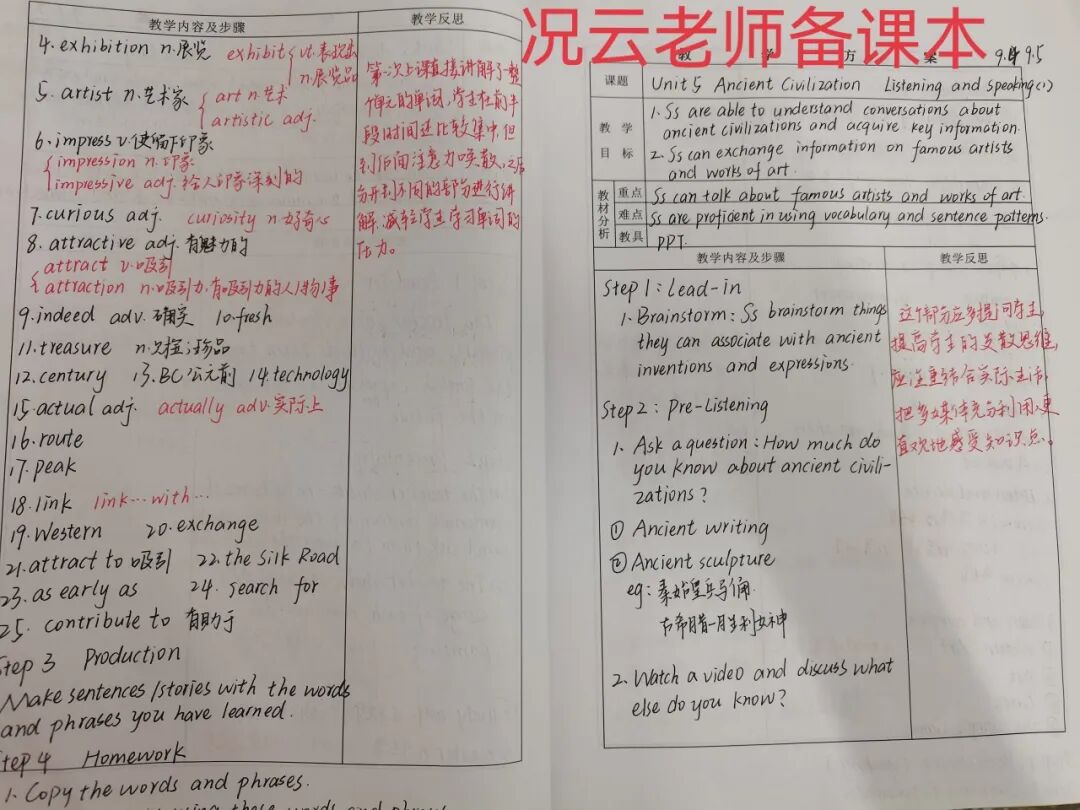 况云老师备课本
教学内容及步骤
教学反思
4. exhibition n.展览 exhibit { vt.表现出
n.展览品
5. artist n.艺术家 { art n.艺术
artistic adj.
6. impress v.使留下印象
{ impression n.印象
impressive adj.给人印象深刻的
7. curious adj. curiosity n.好奇心
8. attractive adj.有魅力的
{ attract v.吸引
attraction n.吸引力.有吸引力的人/物/事
9. indeed adv.确实 10. fresh
11. treasure n.珍品
12. century 13. BC 公元前 14. technology
15. actual adj. actually adv.实际上
16. route
17. peak
18. link link...with...
19. Western 20. exchange
21. attract to 吸引 22. the Silk Road
23. as early as 24. search for
25. contribute to 有助于
Step 3 Production
Make sentences/stories with the words
and phrases you have learned.
Step 4 Homework
1. Copy the words and phrases.
using these words and
第一次上课直接讲解了一整
单元的单词,学生在前半
段时间还比较集中,但
到后面注意力涣散,之后
分开到不同的部分进行讲
解,减轻学生学习单词的
压力。
教学方案 9.4 9.5
课题 Unit 5 Ancient Civilization Listening and speaking(1)
教学目标
1. Ss are able to understand conversations about
ancient civilizations and acquire key information.
2. Ss can exchange information on famous artists
and works of art.
教材分析
重点 Ss can talk about famous artists and works of art.
难点 Ss are proficient in using vocabulary and sentence patterns.
教具 PPT.
教学内容及步骤
教学反思
Step 1: Lead-in
1. Brainstorm: Ss brainstorm things
they can associate with ancient
inventions and expressions.
Step 2: Pre-Listening
1. Ask a question: How much do
you know about ancient civili-
zations?
① Ancient writing
② Ancient sculpture
eg: 秦始皇兵马俑
古希腊-胜利女神
2. Watch a video and discuss what
else do you know?
这个部分应多提问学生,
提高学生的发散思维,
应注重结合实际生活,
把多媒体充分利用,更
直观地感受知识点。